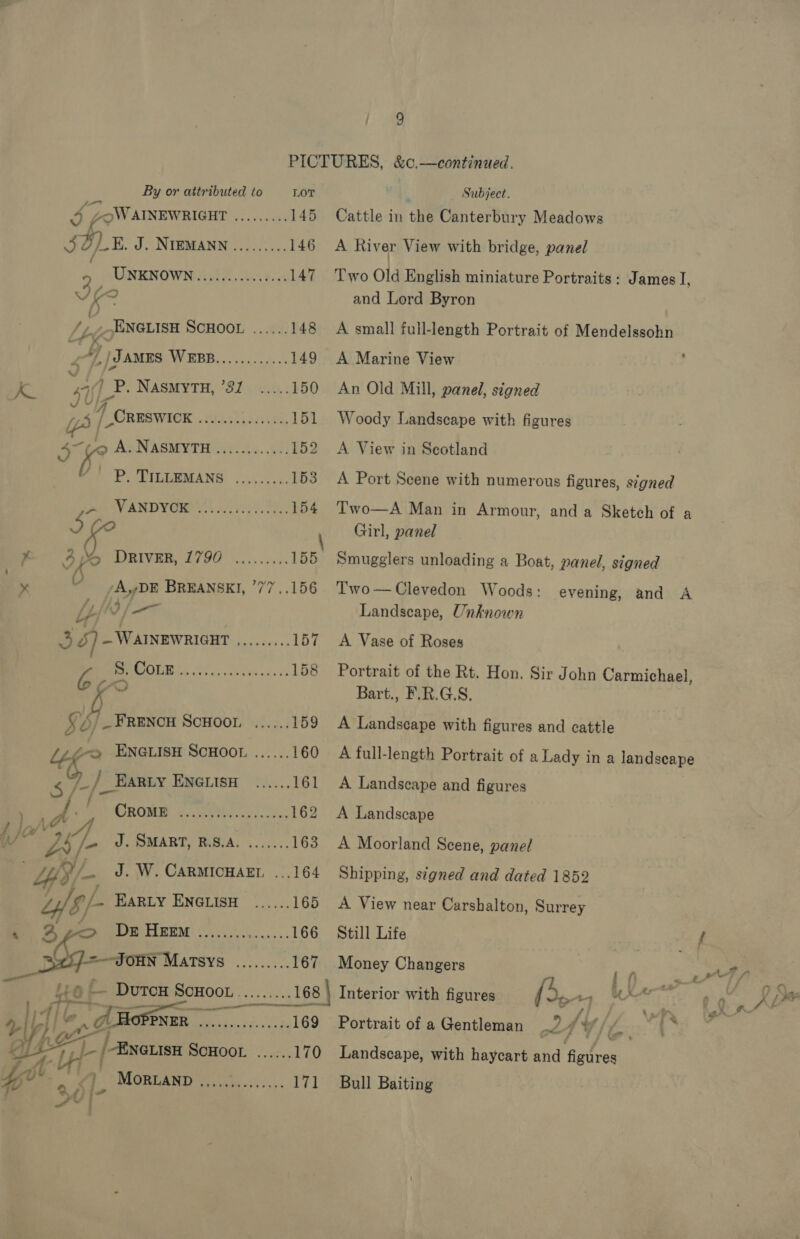 9
PICTURES, &c.—continued.
By or attributed to LOT Subject.
WAINEWRIGHT ......... 145 Cattle in the Canterbury Meadows
E. J. NIEMANN ......... 146 A River View with bridge, panel
UNKNOWN ............... 147 Two Old English miniature Portraits: James I,
and Lord Byron
ENGLISH SCHOOL ...... 148 A small full-length Portrait of Mendelssohn
JAMES WEBB ............ 149 A Marine View
P. NASMYTH, '31 ..... 150 An Old Mill, panel, signed
CRESWICK ............... 151 Woody Landscape with figures
A. NASMYTH ............ 152 A View in Scotland
P. TILLEMANS ......... 153 A Port Scene with numerous figures, signed
VANDYCK ............... 154 Two—A Man in Armour, and a Sketch of a
Girl, panel
DRIVER, 1790 ......... 155 Smugglers unloading a Boat, panel, signed
A. DE BREANSKI, '77 .. 156 Two—Clevedon Woods: evening, and A
Landscape, Unknown
WAINEWRIGHT ......... 157 A Vase of Roses
S. COLE .................. 158 Portrait of the Rt. Hon. Sir John Carmichael,
Bart., F.R.G.S.
FRENCH SCHOOL ...... 159 A Landscape with figures and cattle
ENGLISH SCHOOL ...... 160 A full-length Portrait of a Lady in a landscape
EARLY ENGLISH ...... 161 A Landscape and figures
CROME .................. 162 A Landscape
J. SMART, R.S.A. ....... 163 A Moorland Scene, panel
J. W. CARMICHAEL ... 164 Shipping, signed and dated 1852
EARLY ENGLISH ...... 165 A View near Carshalton, Surrey
DE HEEM ............... 166 Still Life
JOHN MATSYS ......... 167 Money Changers
DUTCH SCHOOL ......... 168 Interior with figures
HOPPNER ............... 169 Portrait of a Gentleman
ENGLISH SCHOOL ...... 170 Landscape, with haycart and figures
MORLAND ............... 171 Bull Baiting